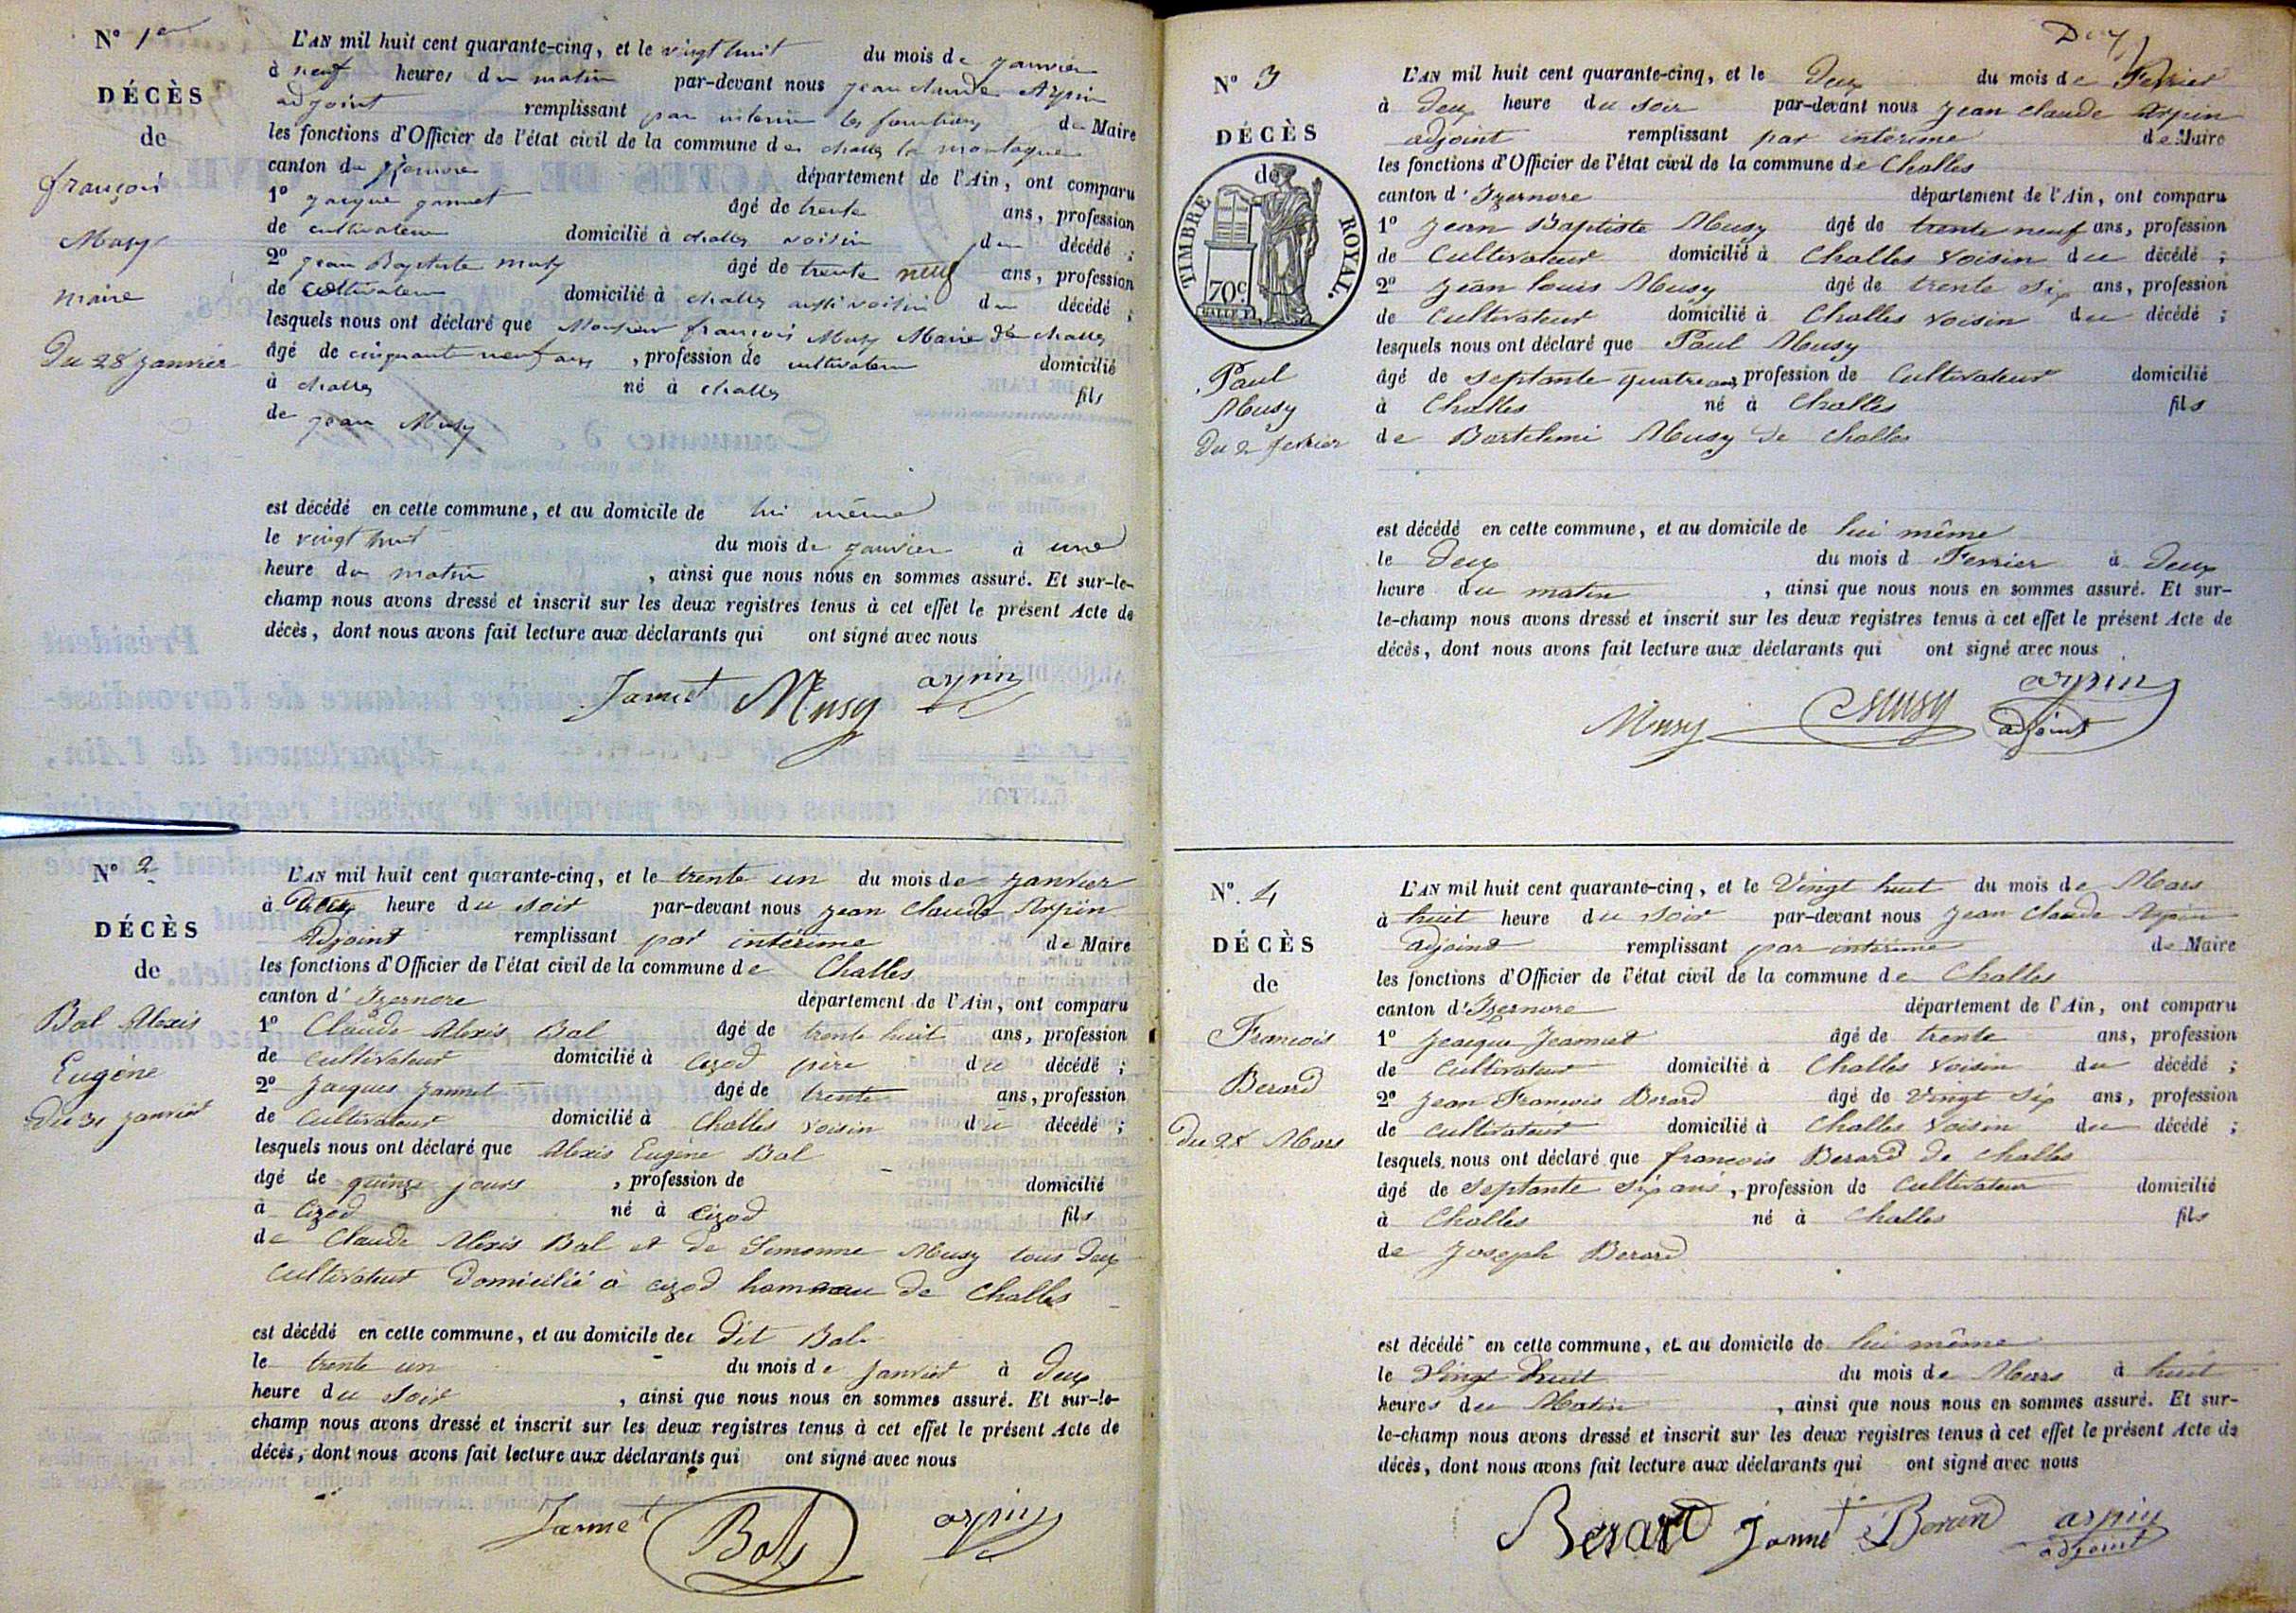 N° 1er
DÉCÈS
de
françois
Musy
maire
Du 28 janvier
L'AN mil huit cent quarante-cinq, et le vingt huit du mois de janvier
à neuf heures du matin par-devant nous jean claude Arpin
adjoint remplissant par interim les fonctions de Maire
les fonctions d'Officier de l'état civil de la commune de challes la montagne
canton de Izernore département de l'Ain, ont comparu
1° jacque jannet âgé de trente ans, profession
de cultivateur domicilié à challes voisin du décédé ;
2° jean Baptiste musy âgé de trente neuf ans, profession
de cultivateur domicilié à challes aussi voisin du décédé ;
lesquels nous ont déclaré que Monsieur françois Musy Maire de challes
âgé de cinquante neuf ans, profession de cultivateur domicilié
à challes né à challes fils
de jean Musy
est décédé en cette commune, et au domicile de lui même
le vingt huit du mois de janvier à une
heure du matin, ainsi que nous nous en sommes assuré. Et sur-le-
champ nous avons dressé et inscrit sur les deux registres tenus à cet effet le présent Acte de
décès, dont nous avons fait lecture aux déclarants qui ont signé avec nous
Jannet Musy arpin
N° 2
DÉCÈS
de
Bal Alexis
Eugène
Du 31 janvier
L'AN mil huit cent quarante-cinq, et le trente un du mois de janvier
à heure du soir par-devant nous jean claude Arpin
Adjoint remplissant par interime de Maire
les fonctions d'Officier de l'état civil de la commune de Challes
canton d'Izernore département de l'Ain, ont comparu
1° Claude Alexis Bal âgé de trente huit ans, profession
de cultivateur domicilié à cizod père du décédé ;
2° Jacques jannet âgé de trente ans, profession
de cultivateur domicilié à Challes voisin du décédé ;
lesquels nous ont déclaré que Alexis Eugène Bal
âgé de quinze jours, profession de - domicilié
à Cizod né à cizod fils
de Claude Alexis Bal et de Simonne Musy tous deux
cultivateur Domicilié à cizod hammeau de Challes
est décédé en cette commune, et au domicile de dit Bal
le trente un du mois de janvier à deux
heure du soir, ainsi que nous nous en sommes assuré. Et sur-le-
champ nous avons dressé et inscrit sur les deux registres tenus à cet effet le présent Acte de
décès, dont nous avons fait lecture aux déclarants qui ont signé avec nous
Jannet Bal arpin
N° 3
DÉCÈS
de
TIMBRE ROYAL.
70c.
Paul
Musy
Du 2 fevrier
L'AN mil huit cent quarante-cinq, et le Deux du mois de Fevrier
à Deux heure du soir par-devant nous jean claude Arpin
adjoint remplissant par interime de Maire
les fonctions d'Officier de l'état civil de la commune de Challes
canton d'Izernore département de l'Ain, ont comparu
1° Jean Baptiste Musy âgé de trente neuf ans, profession
de Cultivateur domicilié à Challes voisin du décédé ;
2° Jean louis Musy âgé de trente six ans, profession
de Cultivateur domicilié à Challes voisin du décédé ;
lesquels nous ont déclaré que Paul Musy
âgé de septante quatre ans profession de Cultivateur domicilié
à Challes né à Challes fils
de Bartelemi Musy de challes
est décédé en cette commune, et au domicile de lui même
le Deux du mois d Fevrier à Deux
heure du matin, ainsi que nous nous en sommes assuré. Et sur-
le-champ nous avons dressé et inscrit sur les deux registres tenus à cet effet le présent Acte de
décès, dont nous avons fait lecture aux déclarants qui ont signé avec nous
Musy Musy arpin
adjoint
N°. 4
DÉCÈS
de
Francois
Berard
Du 28 Mars
L'AN mil huit cent quarante-cinq, et le Vingt huit du mois de Mars
à huit heure du soir par-devant nous Jean Claude Arpin
adjoint remplissant par interime de Maire
les fonctions d'Officier de l'état civil de la commune de Challes
canton d'Izernore département de l'Ain, ont comparu
1° Jeacque Jeannet âgé de trente ans, profession
de Cultivateur domicilié à Challes voisin du décédé ;
2° Jean Francois Berard âgé de Vingt Six ans, profession
de cultivateur domicilié à Challes voisin du décédé ;
lesquels nous ont déclaré que francois Berard de challes
âgé de septante six ans, profession de Cultivateur domicilié
à Challes né à Challes fils
de Joseph Berard
est décédé en cette commune, et au domicile de lui même
le Vingt huit du mois de Mars à huit
heures du Matin, ainsi que nous nous en sommes assuré. Et sur-
le-champ nous avons dressé et inscrit sur les deux registres tenus à cet effet le présent Acte de
décès, dont nous avons fait lecture aux déclarants qui ont signé avec nous
Berard Jannet Berard arpin
adjoint